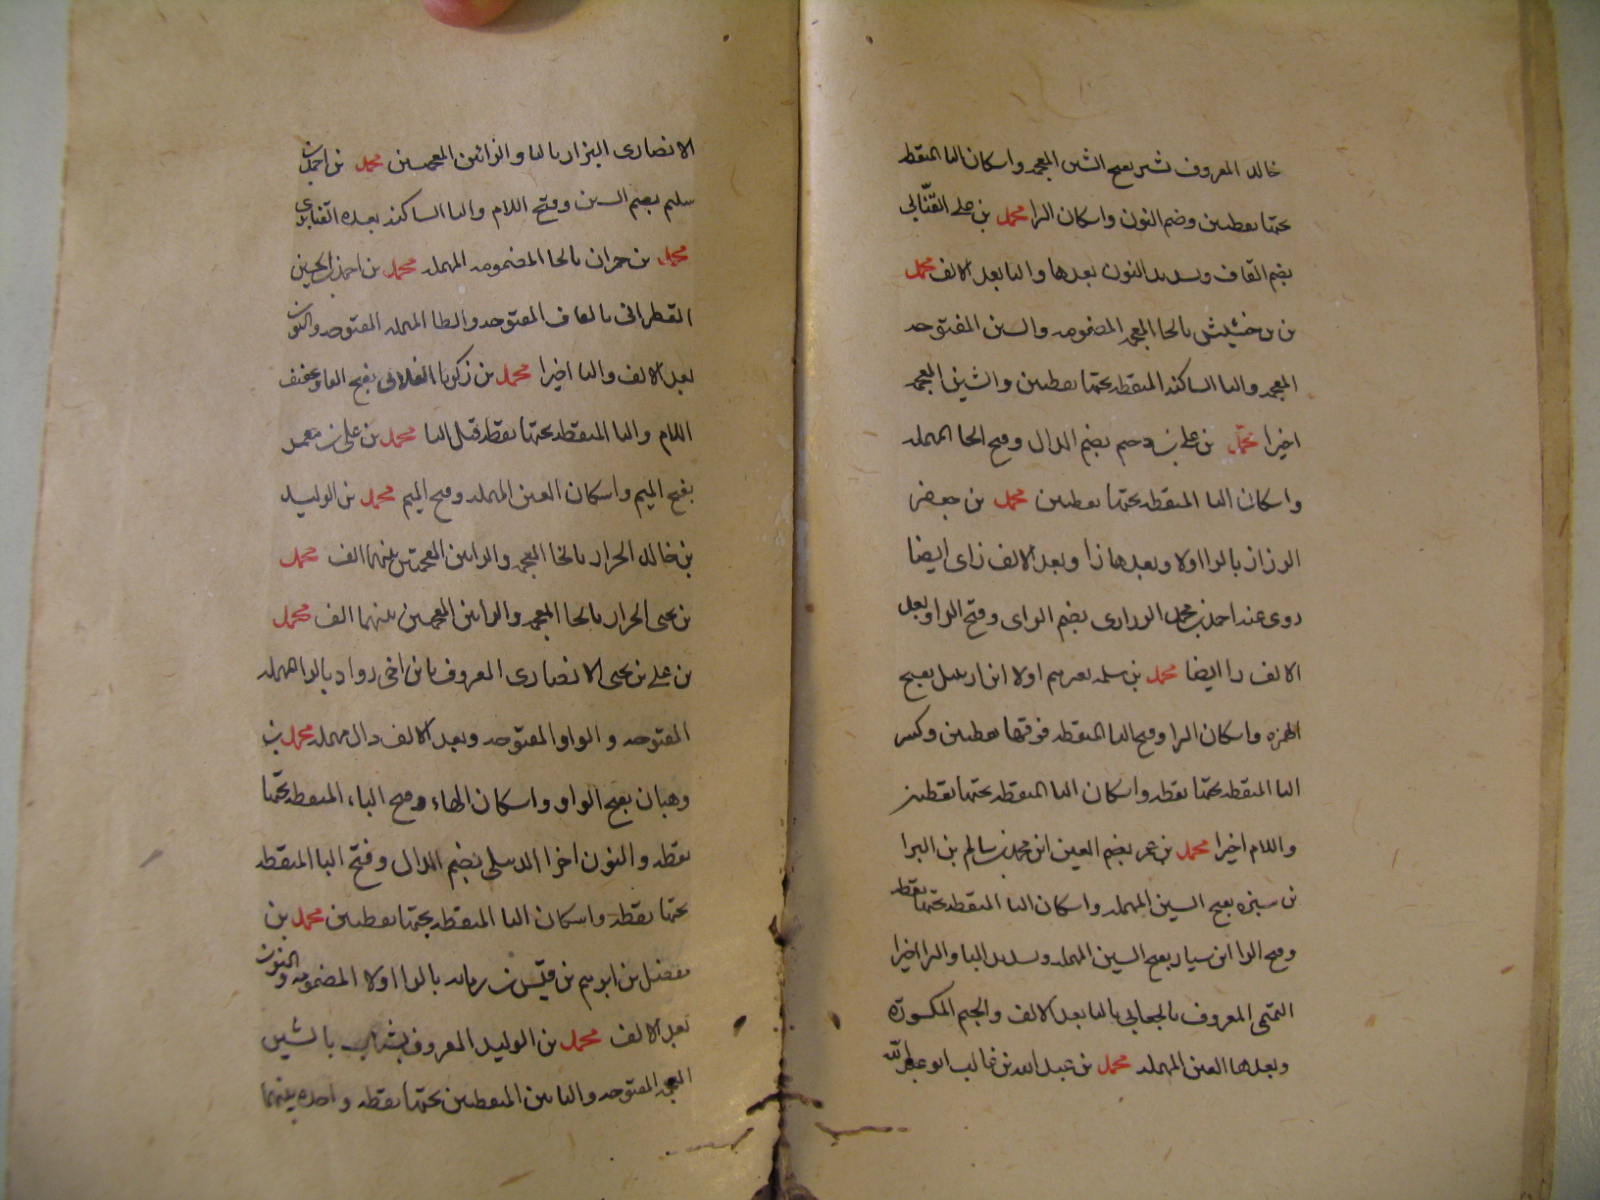 خالد المعروف بفتح الشين المعجمه واسكان اليا المنقطه
تحتها نقطتين وضم النون واسكان الرا محمد بن علي القنّابي
بضم القاف وتشديد النون بعدها واليا بعد الالف محمد
بن خشيش بالخا المعجمه المضمومه والشين المفتوحه
المعجمه واليا الساكنه المنقطه تحتها نقطتين والشين المعجمه
اخيرا محمد بن علي بن دحيم بضم الدال وفتح الحا المهمله
واسكان اليا المنقطه تحتها نقطتين محمد بن جعفر
الرزاز بالرا اولا وبعدها زا وبعد الالف زاى ايضا
روى عنه احمد بن محمد الزرارى بضم الزاى وفتح الرا وبعد
الالف را ايضا محمد بن سلمه بغير ميم اولا ابن ارتبيل بفتح
الهمزه واسكان الرا وفتح التا المنقطه فوقها نقطتين وكسر
البا المنقطه تحتها نقطه واسكان اليا المنقطه تحتها نقطتين
واللام اخيرا محمد بن عمر بضم العين ابن محمد بن سالم بن البرا
بن سبره بفتح السين المهمله واسكان البا المنقطه تحتها نقطه
وفتح الرا ابن سيار بفتح السين المهمله وتشديد اليا والرا اخيرا
التميمى المعروف بالجعابي باليا بعد الالف والجيم المكسورة
وبعدها العين المهمله محمد بن عبد الله بن غالب ابو عبد الله
الانصارى البزاز بالبا والزائين المعجمتين محمد بن احمد بن
سليم بضم السين وفتح اللام واليا الساكنه بعده
محمد بن حمران بالحا المضمومه المهمله محمد بن احمد بن الحسين
القطرانى بالقاف المفتوحه والطا المهمله المفتوحه والنون
بعد الالف واليا اخيرا محمد بن زكريا الغلابى بفتح الغا وتخفيف
اللام والبا المنقطه تحتها نقطه قبل اليا محمد بن على بن معمر
بفتح الميم واسكان العين المهمله وفتح الميم محمد بن الوليد
بن خالد الخزاز بالخا المعجمه والزائين المعجمتين بينهما الف محمد
بن يحيى الخزاز بالخا المعجمه والزائين المعجمتين بينهما الف محمد
بن علي بن يحيى الانصارى المعروف بابن اخى رواد بالرا المهمله
المفتوحه والواو المفتوحه وبعد الالف دال مهمله محمد بن
وهبان بفتح الواو واسكان الهاء وفتح الباء المنقطه تحتها
نقطه والنون اخرا الدبيلى بضم الدال وفتح البا المنقطه
تحتها نقطة واسكان اليا المنقطه تحتها نقطتين محمد بن
مفضل بن ابرهيم بن قيس بن رمانه بالرا اولا المضمومه والنون
بعد الالف محمد بن الوليد المعروف بشباب بالشين
المعجمه المفتوحه والبائين المنقطتين تحتها نقطه واحده بينهما